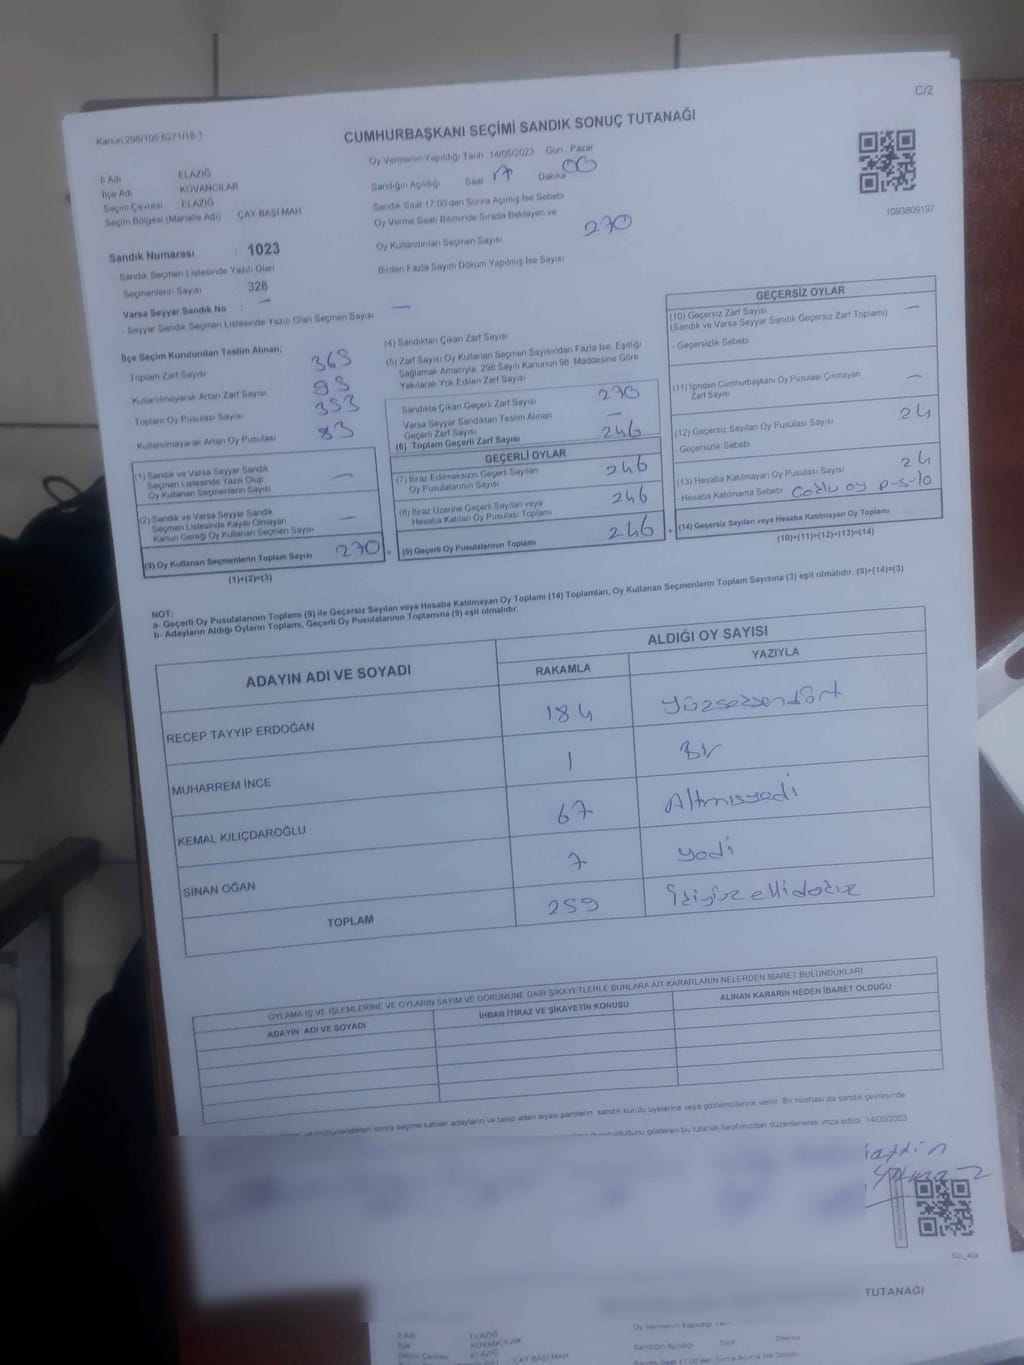 C/2
Kanun 298/105 627/1/18 1
CUMHURBAŞKANI SEÇİMİ SANDIK SONUÇ TUTANAĞI
Oy Vermenin Yapıldığı Tarih 14/05/2023 Gün Pazar
Sandığın Açıldığı Saat 17 Dakika 00
Sandık Saat 17:00'den Sonra Açılmış İse Sebebi
Oy Verme Saati Bitiminde Sırada Bekleyen ve
Oy Kullandırılan Seçmen Sayısı 270
Birden Fazla Sayım Döküm Yapılmış İse Sayısı
1093609197
İl Adı ELAZIĞ
İlçe Adı KOVANCILAR
Seçim Çevresi : ELAZIĞ
Seçim Bölgesi (Mahalle Adı) ÇAY BAŞI MAH
Sandık Numarası : 1023
- Sandık Seçmen Listesinde Yazılı Olan
Seçmenlerin Sayısı : 328
Varsa Seyyar Sandık No : —
- Seyyar Sandık Seçmen Listesinde Yazılı Olan Seçmen Sayısı : —
İlçe Seçim Kurulundan Teslim Alınan;
Toplam Zarf Sayısı 365
- Kullanılmayarak Artan Zarf Sayısı 95
- Toplam Oy Pusulası Sayısı 353
- Kullanılmayarak Artan Oy Pusulası 83
(1) Sandık ve Varsa Seyyar Sandık
Seçmen Listesinde Yazılı Olup
Oy Kullanan Seçmenlerin Sayısı —
(2) Sandık ve Varsa Seyyar Sandık
Seçmen Listesinde Kayıtlı Olmayan
Kanun Gereği Oy Kullanan Seçmen Sayısı —
(3) Oy Kullanan Seçmenlerin Toplam Sayısı 270
(1)+(2)=(3)
(4) Sandıktan Çıkan Zarf Sayısı
(5) Zarf Sayısı Oy Kullanan Seçmen Sayısından Fazla İse, Eşitliği
Sağlamak Amacıyla, 298 Sayılı Kanunun 98. Maddesine Göre
Yakılarak Yok Edilen Zarf Sayısı
Sandıkta Çıkan Geçerli Zarf Sayısı 270
Varsa Seyyar Sandıktan Teslim Alınan
Geçerli Zarf Sayısı —
(6) Toplam Geçerli Zarf Sayısı 246
GEÇERLİ OYLAR
(7) İtiraz Edilmeksizin Geçerli Sayılan
Oy Pusulalarının Sayısı 246
(8) İtiraz Üzerine Geçerli Sayılan veya
Hesaba Katılan Oy Pusulası Toplamı 246
(9) Geçerli Oy Pusulalarının Toplamı 246
GEÇERSİZ OYLAR
(10) Geçersiz Zarf Sayısı
(Sandık ve Varsa Seyyar Sandık Geçersiz Zarf Toplamı) —
- Geçersizlik Sebebi
(11) İçinden Cumhurbaşkanı Oy Pusulası Çıkmayan
Zarf Sayısı —
(12) Geçersiz Sayılan Oy Pusulası Sayısı 24
- Geçersizlik Sebebi
(13) Hesaba Katılmayan Oy Pusulası Sayısı 24
- Hesaba Katılmama Sebebi oy
(14) Geçersiz Sayılan veya Hesaba Katılmayan Oy Toplamı
(10)+(11)+(12)+(13)=(14)
NOT:
a- Geçerli Oy Pusulalarının Toplamı (9) ile Geçersiz Sayılan veya Hesaba Katılmayan Oy Toplamı (14) Toplamları, Oy Kullanan Seçmenlerin Toplam Sayısına (3) eşit olmalıdır. (9)+(14)=(3)
b- Adayların Aldığı Oyların Toplamı, Geçerli Oy Pusulalarının Toplamına (9) eşit olmalıdır.
ADAYIN ADI VE SOYADI ALDIĞI OY SAYISI
RAKAMLA YAZIYLA
RECEP TAYYİP ERDOĞAN 184 yüzseksendört
MUHARREM İNCE 1 Bir
KEMAL KILIÇDAROĞLU 67 Altmışyedi
SİNAN OĞAN 7 yedi
TOPLAM 259 ikiyüzellidokuz
OYLAMA İŞ VE İŞLEMLERİNE VE OYLARIN SAYIM VE DÖKÜMÜNE DAİR ŞİKAYETLERLE BUNLARA AİT KARARLARIN NELERDEN İBARET BULUNDUKLARI
ADAYIN ADI VE SOYADI İHBAR İTİRAZ VE ŞİKAYETİN KONUSU ALINAN KARARIN NEDEN İBARET OLDUĞU
ve mühürlendikten sonra seçime katılan adayların ve talep eden siyasi partilerin sandık kurulu üyelerine veya gözlemcilerine verilir. Bir nüshası da sandık çevresinde
olduğunu gösteren bu tutanak tarafımızdan düzenlenerek imza edildi. 14/05/2023
SSI_404
TUTANAĞI
İl Adı ELAZIĞ
İlçe KOVANCILAR
Seçim Çevresi ELAZIĞ
ÇAY BAŞI MAH
Oy Vermenin Yapıldığı
Sandığın Açıldığı Saat Dakika
Sandık Saat 17:00'den Sonra Açılmış İse Sebebi